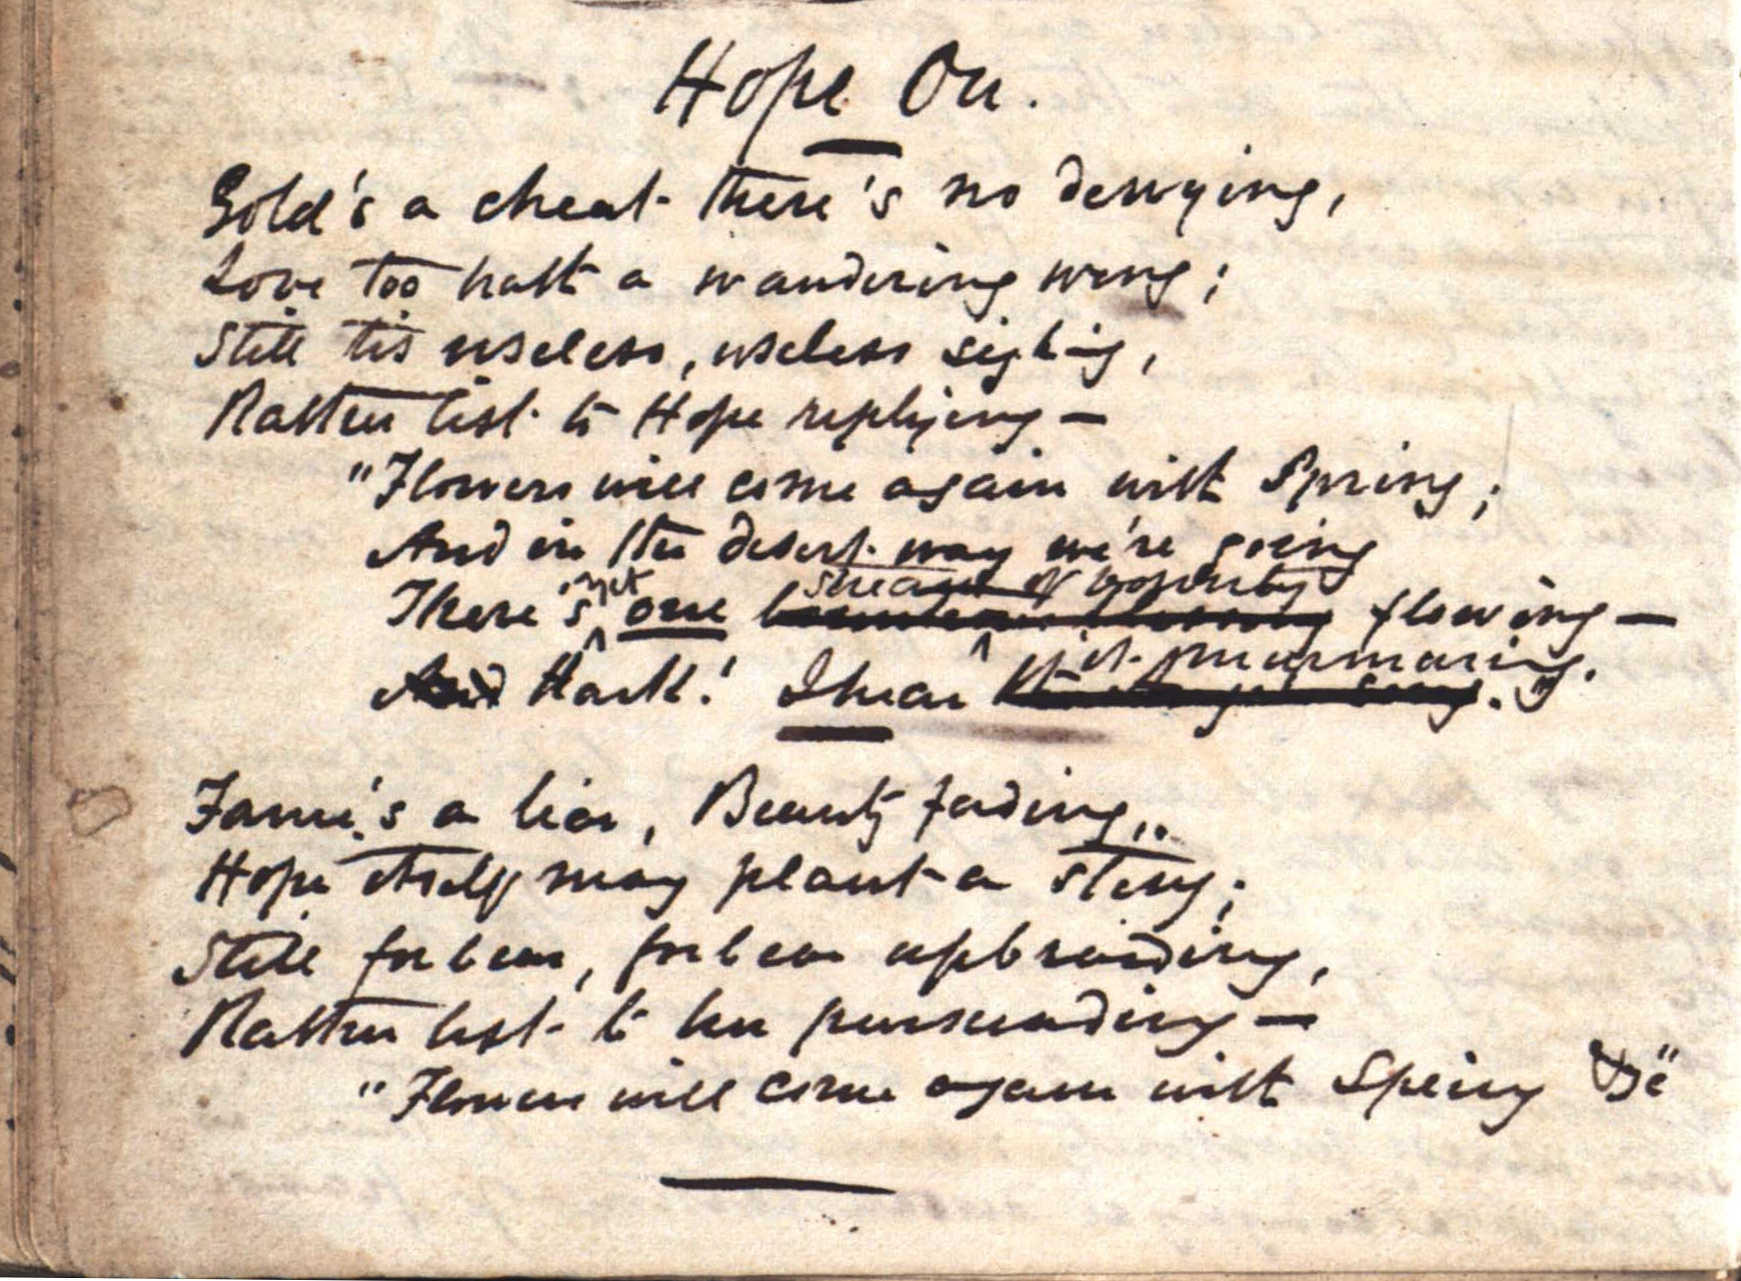 Hope On.
Gold's a cheat there's no denying,
Love too hath a wandering wing;
Still tis useless, useless sighing,
Rather list to Hope replying —
"Flowers will come again with Spring;
And in the desert way we're going
There's yet one stream of bounty flowing —
And Hark! I hear it murmuring."
Fame's a liar, Beauty fading,
Hope itself may plant a sting;
Still forbear, forbear upbraiding,
Rather list to her persuading —
"Flowers will come again with Spring &c"